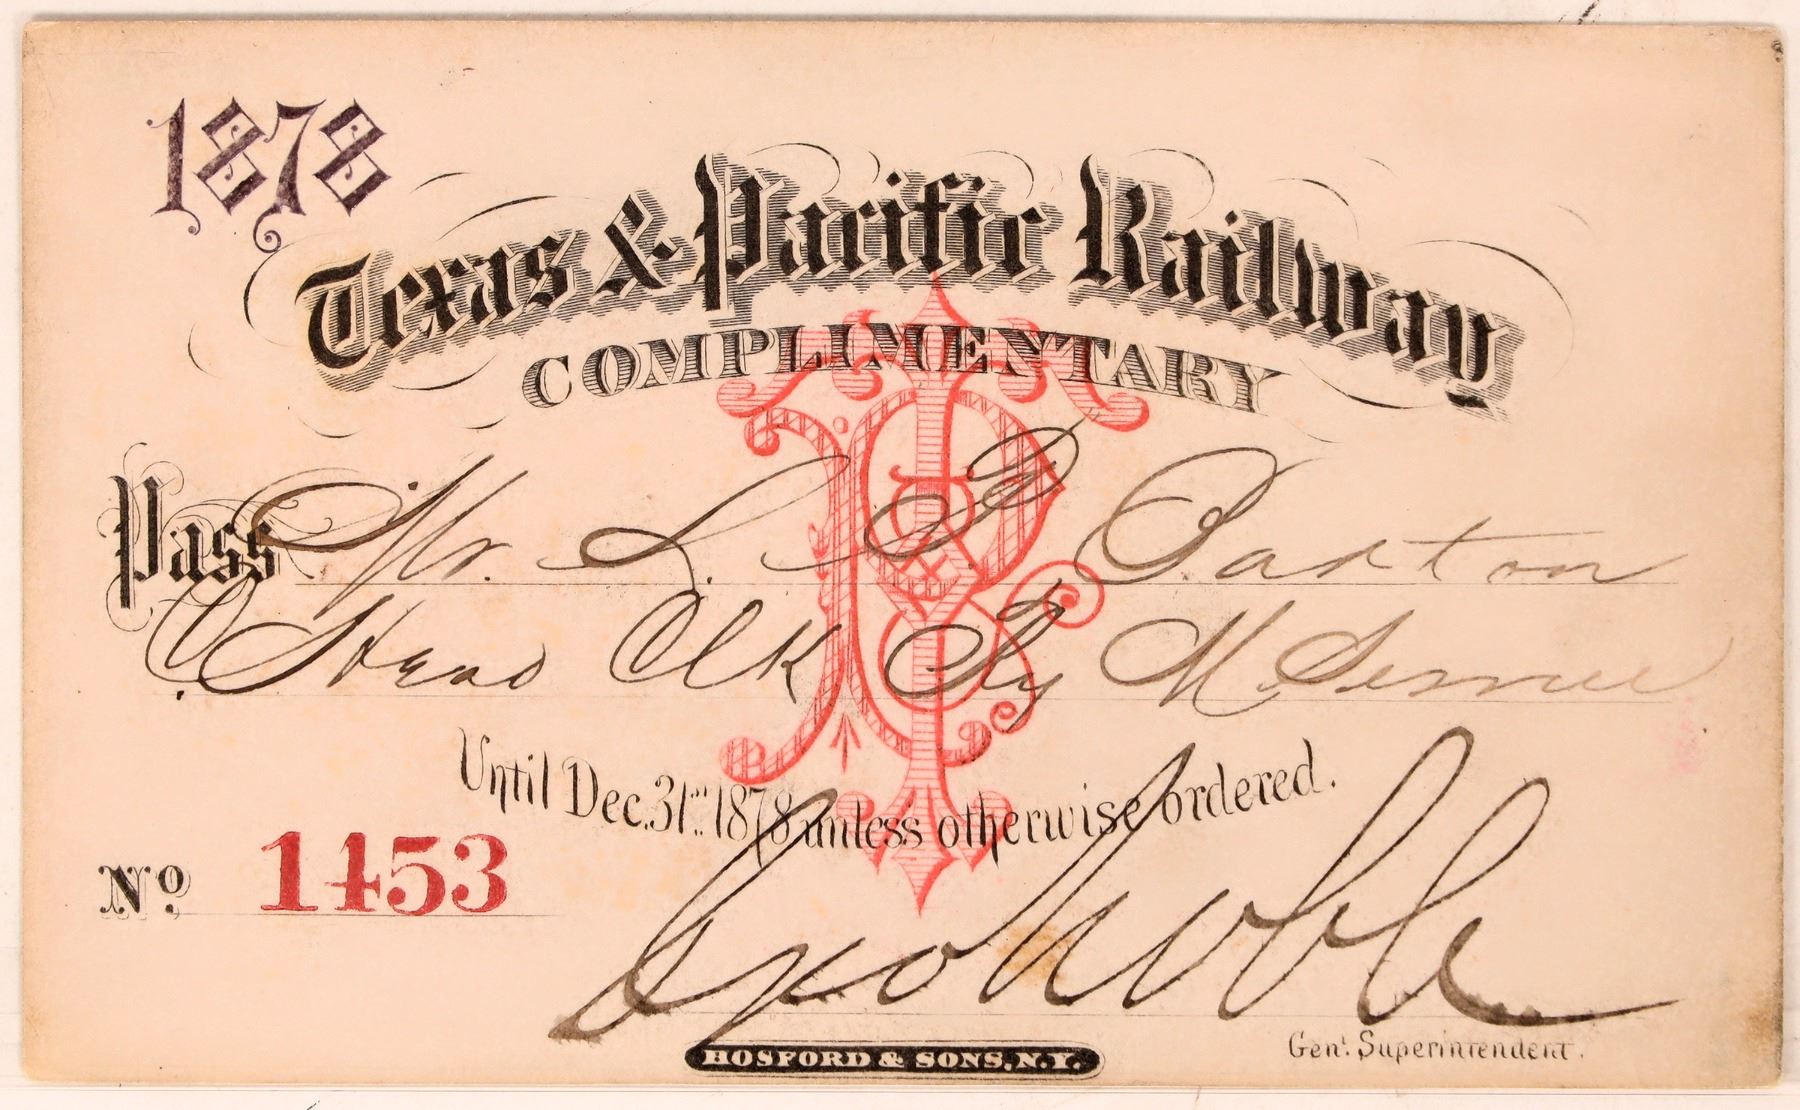 1878
Texas & Pacific Railway
COMPLIMENTARY
Pass Mr. L. P. Paxton
Head Clk Ry M. Service
Until Dec. 31st. 1878 unless otherwise ordered.
No. 1453
Geo Noble
Genl. Superintendent.
HOSFORD & SONS, N.Y.